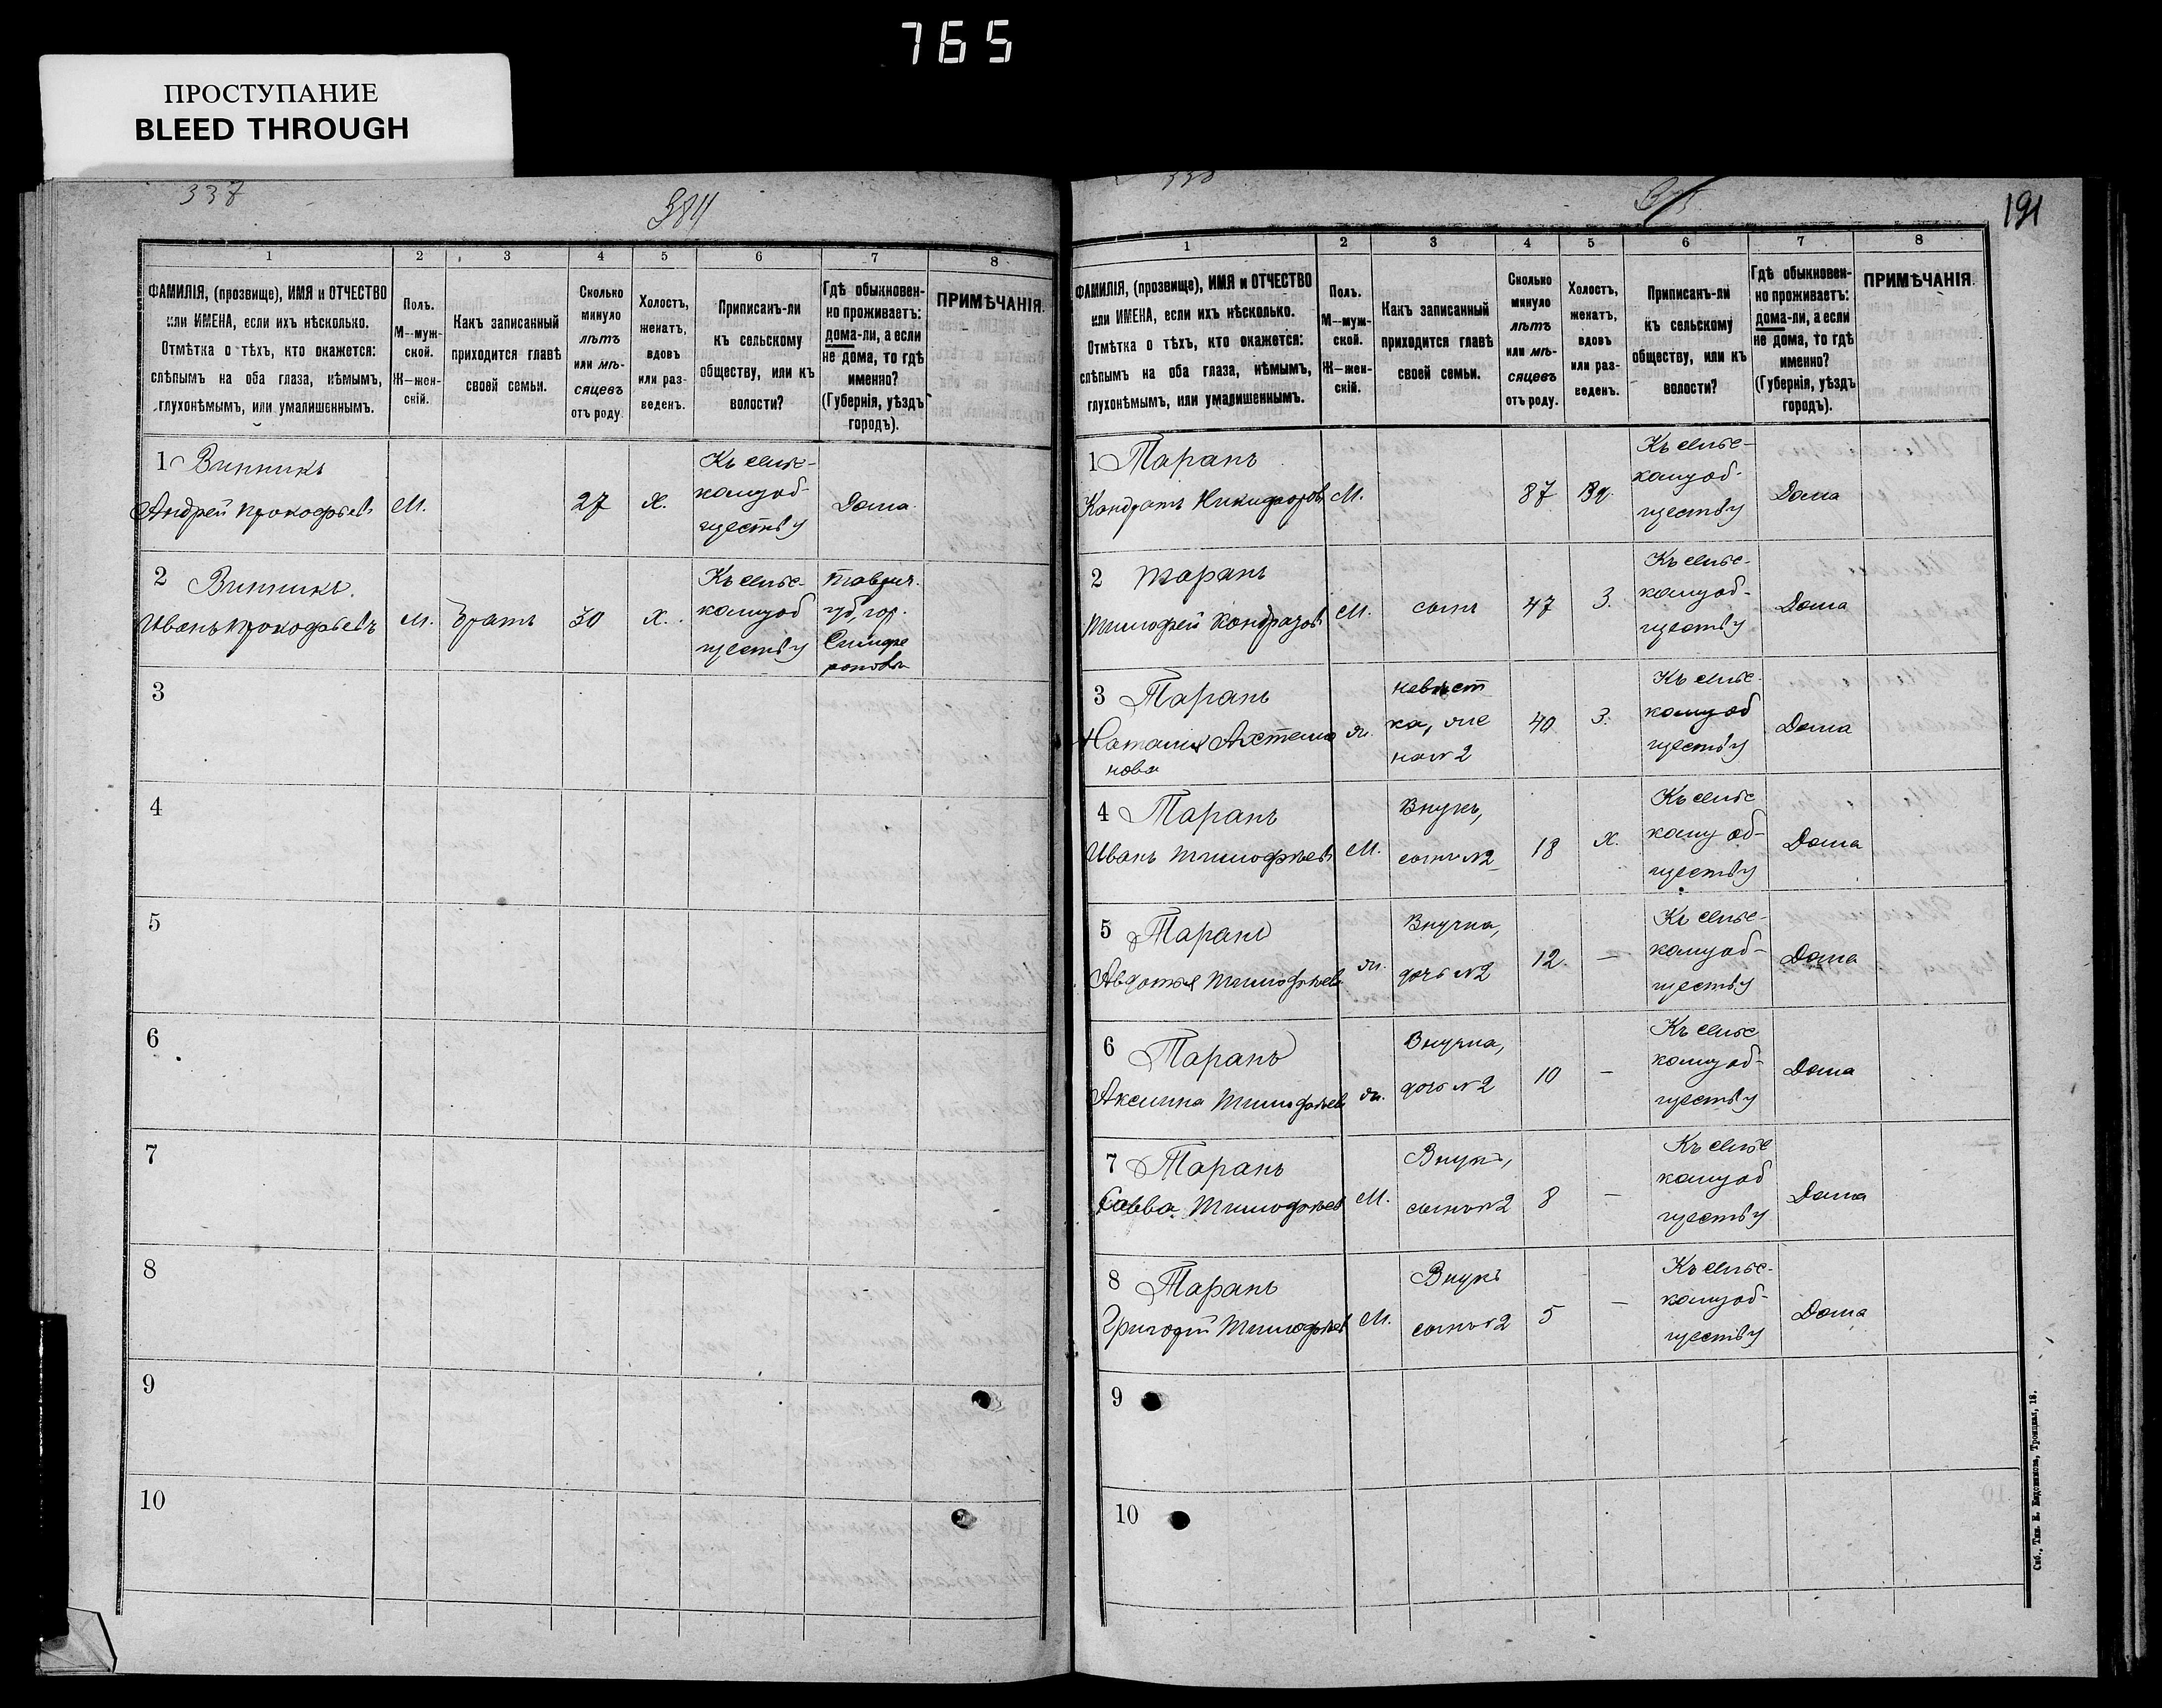 765
ПРОСТУПАНИЕ
BLEED THROUGH
337
384
1 2 3 4 5 6 7 8
ФАМИЛІЯ, (прозвище), ИМЯ и ОТЧЕСТВО
или ИМЕНА, если ихъ нѣсколько.
Отмѣтка о тѣхъ, кто окажется:
слѣпымъ на оба глаза, нѣмымъ,
глухонѣмымъ, или умалишеннымъ.
Полъ.
М—муж-
ской.
Ж—жен-
скій.
Какъ записанный
приходится главѣ
своей семьи.
Сколько
минуло
лѣтъ
или мѣ-
сяцевъ
отъ роду.
Холостъ,
женатъ,
вдовъ
или раз-
веденъ.
Приписанъ-ли
къ сельскому
обществу, или къ
волости?
Гдѣ обыкновен-
но проживаетъ:
дома-ли, а если
не дома, то гдѣ
именно?
(Губернія, уѣздъ
городъ).
ПРИМѢЧАНІЯ.
1 Винникъ
Андрей Прокофьевъ М. 27 Х.
Къ сельс-
кому об-
ществу
Дома
2 Винникъ
Иванъ Прокофьевъ М. Братъ 30 Х.
Къ сельс-
кому об
ществу
Таврич.
губ, гор.
Симфе
рополь
3
4
5
6
7
8
9
10
338
191
1 2 3 4 5 6 7 8
ФАМИЛІЯ, (прозвище), ИМЯ и ОТЧЕСТВО
или ИМЕНА, если ихъ нѣсколько.
Отмѣтка о тѣхъ, кто окажется:
слѣпымъ на оба глаза, нѣмымъ,
глухонѣмымъ, или умалишеннымъ.
Полъ.
М—муж-
ской.
Ж—жен-
скій.
Какъ записанный
приходится главѣ
своей семьи.
Сколько
минуло
лѣтъ
или мѣ-
сяцевъ
отъ роду.
Холостъ,
женатъ,
вдовъ
или раз-
веденъ.
Приписанъ-ли
къ сельскому
обществу, или къ
волости?
Гдѣ обыкновен-
но проживаетъ:
дома-ли, а если
не дома, то гдѣ
именно?
(Губернія, уѣздъ
городъ).
ПРИМѢЧАНІЯ.
1 Таранъ
Кондратъ Никифоровъ М. 87 Вд.
Къ сельс-
кому об-
ществу
Дома
2 Таранъ
Тимофей Кондратовъ М. сынъ 47 З.
Къ сельс-
кому об-
ществу
Дома
3 Таранъ
Наталия
нова
ж.
невѣст
ка, же
на № 2
40 З.
Къ сельс
кому об
ществу
Дома
4 Таранъ
Иванъ Тимофѣевъ М.
Внукъ,
сынъ № 2
18 Х.
Къ сельс
кому об-
ществу
Дома
5 Таранъ
Авдотья Тимофѣева ж.
Внучка,
дочь № 2
12. —
Къ сельс-
кому об-
ществу
Дома
6 Таранъ
Аксинья Тимофѣева ж.
Внучка,
дочь № 2
10 —
Къ сельс
кому об-
ществу
Дома
7 Таранъ
Савва Тимофѣев М.
Внукъ,
сынъ № 2
8 —
Къ сельс
кому об
ществу
Дома
8 Таранъ
Григорій Тимофѣев М.
Внукъ
сынъ № 2
5 —
Къ сельс-
кому об-
ществу
Дома
9
10
Спб., Тип. Е. Евдокимова, Троицкая, 18.